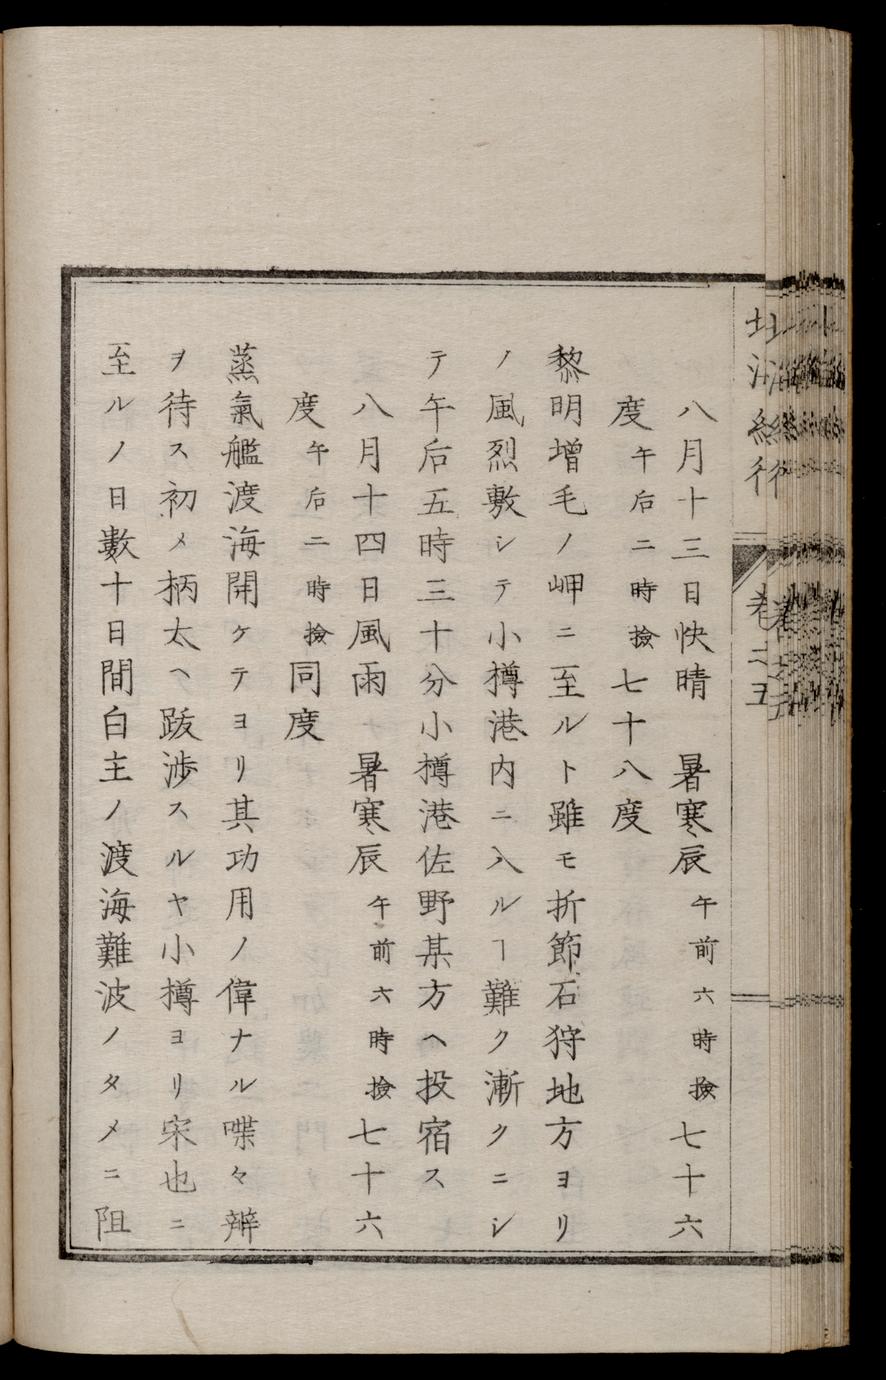 八月十三日快晴　暑寒辰午前六時撿七十六
度午后二時撿七十八度
黎明増毛ノ岬ニ至ルト雖モ折節石狩地方ヨリ
ノ風烈敷シテ小樽港内ニ入ルヿ難ク漸クニシ
テ午后五時三十分小樽港佐野某方ヘ投宿ス
八月十四日風雨　暑寒辰午前六時撿七十六
度午后二時撿同度
蒸氣艦渡海開ケテヨリ其功用ノ偉ナル喋々辨
ヲ待ス初メ柄太ヘ跋渉スルヤ小樽ヨリ宋也ニ
至ルノ日數十日間白主ノ渡海難波ノタメニ阻
北海紀行　巻之五